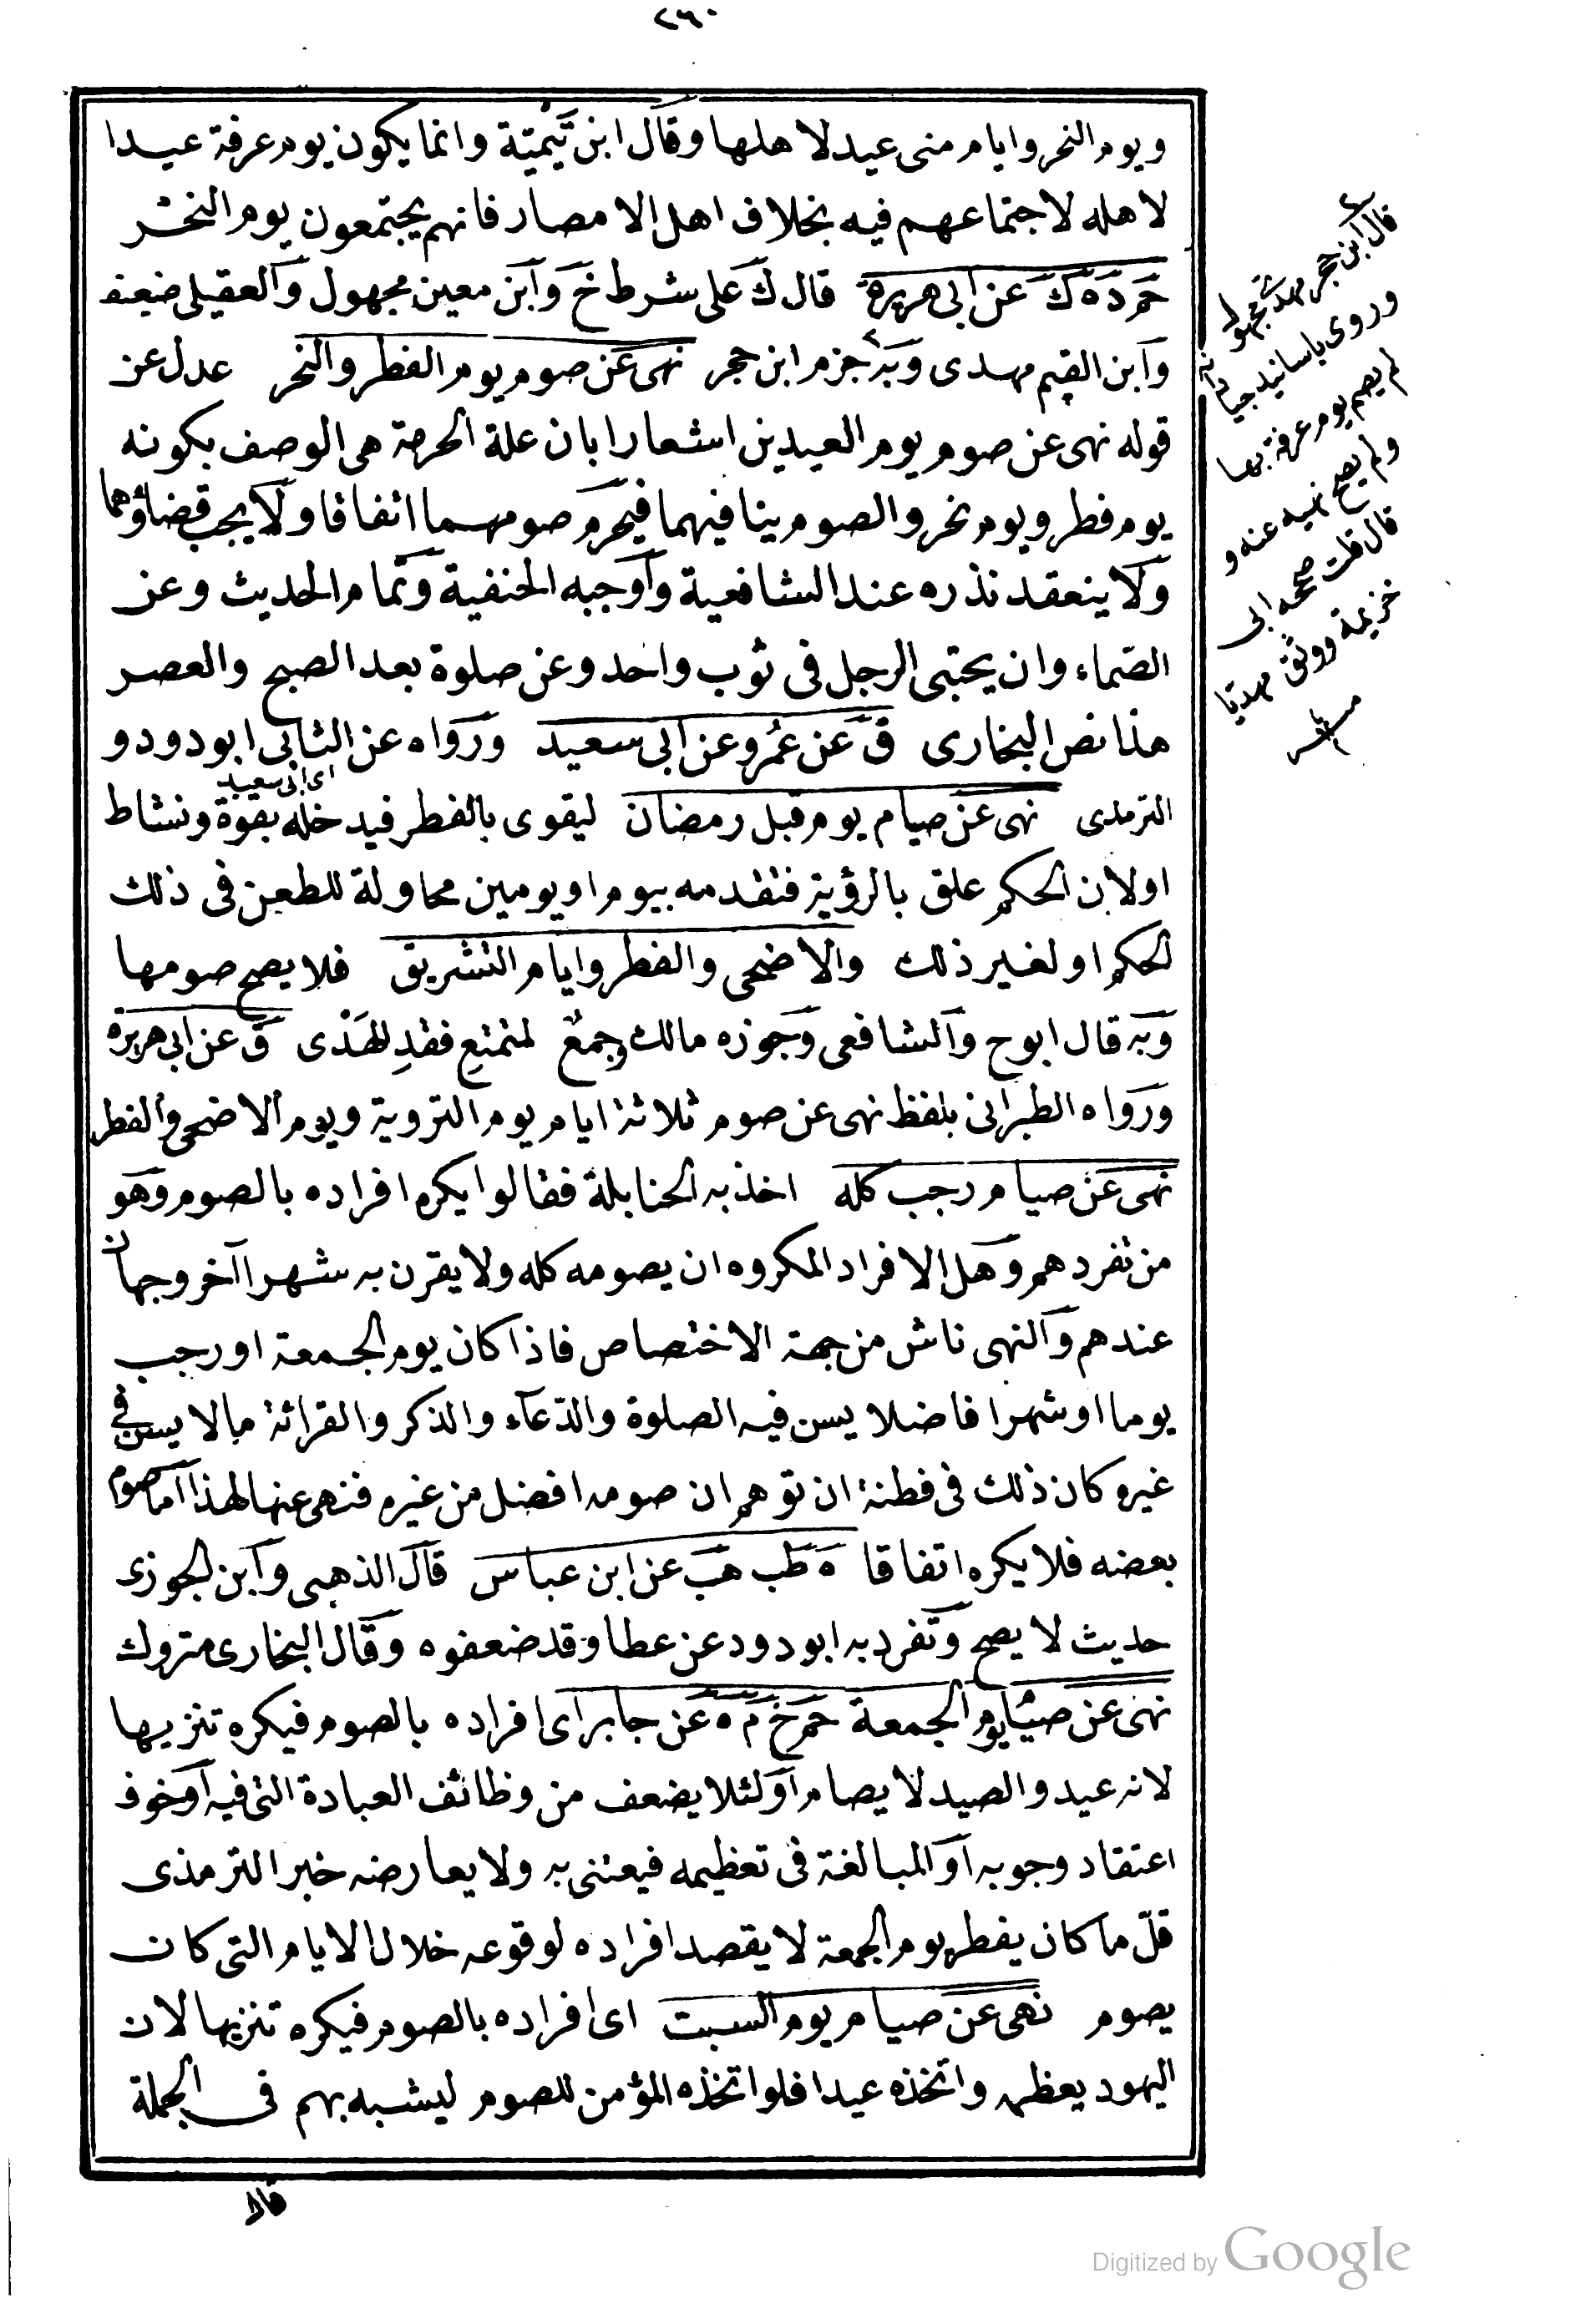 ٢٦٠
ويوم النحر وايام منى عيد لاهلها وقال ابن تيمية وانما يكون يوم عرفة عيدا
لاهله لاجتماعهم فيه بخلاف اهل الامصار فانهم يجتمعون يوم النحر
حم د ه ك عن ابى هريرة قال ك على شرط خ وابن معين مجهول والعقيلى ضعيف
وابن القيم مهدى وبه جزم ابن حجر نهى عن صوم يوم الفطر والنحر عدل عن
قوله نهى عن صوم يوم العيدين اشعارا بان علة الحرمة هى الوصف بكونه
يوم فطر ويوم نحر والصوم ينافيهما فيحرم صومهما اتفاقا ولا يجب قضاؤهما
ولا ينعقد نذره عند الشافعية واوجبه الحنفية وتمام الحديث وعن
الصماء وان يحتبى الرجل فى ثوب واحد وعن صلوة بعد الصبح والعصر
هذا نص البخارى ق عن عمر وعن ابى سعيد ورواه عن الثانى ابو دود و
اى ابى سعيد
الترمذى نهى عن صيام يوم قبل رمضان ليقوى بالفطر فيدخله بقوة ونشاط
اولان الحكم علق بالرؤية فتقدمه بيوم او يومين محاولة للطعن فى ذلك
الحكم او لغير ذلك والاضحى والفطر وايام التشريق فلا يصح صومها
وبه قال ابوح والشافعى وجوزه مالك وجمع لمتمتع فقد الهدى ق عن ابى هريرة
ورواه الطبرانى بلفظ نهى عن صوم ثلاثة ايام يوم التروية ويوم الاضحى والفطر
نهى عن صيام رجب كله اخذ به الحنابلة فقالوا يكره افراده بالصوم وهو
من تفردهم وهل الافراد المكروه ان يصومه كله ولا يقرن به شهرا آخر وجهان
عندهم والنهى ناش من جهة الاختصاص فاذا كان يوم الجمعة او رجب
يوما او شهرا فاضلا يسن فيه الصلوة والدعآء والذكر والقرائة مالا يسن فى
غيره كان ذلك فى فطنة ان توهم ان صومه افضل من غيره فنهى عنها لهذا اما صوم
بعضه فلا يكره اتفاقا ه طب هب عن ابن عباس قال الذهبى وابن الجوزى
حديث لا يصح وتفرد به ابو دود عن عطا وقد ضعفوه وقال البخارى متروك
نهى عن صيام يوم الجمعة حم خ م ه عن جابر اى افراده بالصوم فيكره تنزيها
لانه عيد والصيد لا يصام او لئلا يضعف من وظائف العبادة التى فيه او خوف
اعتقاد وجوبه او المبالغة فى تعظيمه فيعتنى به ولا يعارضه خبر الترمذى
قل ما كان يفطر يوم الجمعة لا يقصد افراده لوقوعه خلال الايام التى كان
يصوم نهى عن صيام يوم السبت اى افراده بالصوم فيكره تنزيها لان
اليهود يعظمه واتخذه عيدا فلو اتخذه المؤمن للصوم ليشبه بهم فى الجملة
قال ابن حجر مهدى مجهول
وروى باسانيد جياد انه
لم يصم يوم عرفة بها
ولم يصح نهيه عنه و
قال قلت صححه ابن
خزيمة ووثق مهديا
Digitized by Google